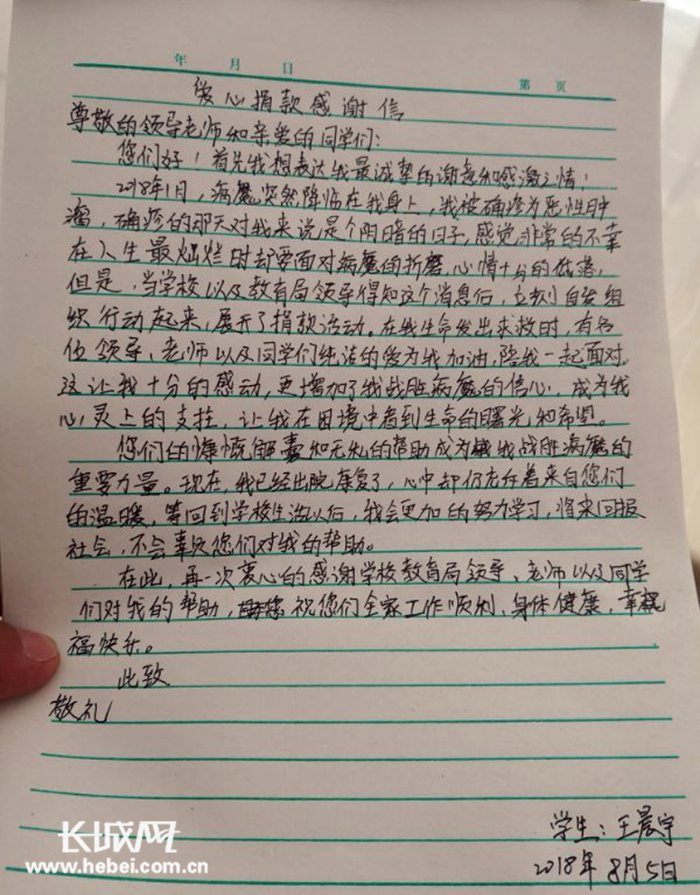 年 月 日
第 页
爱心捐款感谢信
尊敬的领导老师和亲爱的同学们:
您们好！首先我想表达我最诚挚的谢意和感激之情！
2018年1月，病魔突然降临在我身上，我被确疹为恶性肿
瘤，确疹的那天对我来说是个阴暗的日子，感觉非常的不幸
在人生最灿烂时却要面对病魔的折磨，心情十分的低落，
但是，当学校以及教育局领导得知这个消息后，立刻自发组
织行动起来，展开了捐款活动。在我生命发出求救时，有各
位领导、老师以及同学们纯洁的爱为我加油，陪我一起面对，
这让我十分的感动，更增加了我战胜病魔的信心，成为我
心灵上的支柱，让我在困境中看到生命的曙光和希望。
您们的慷慨解囊和无私的帮助成为我战胜病魔的
重要力量。现在，我已经出院康复了，心中却仍充存着来自您们
的温暖，等回到学校生活以后，我会更加的努力学习，将来回报
社会，不会辜负您们对我的帮助。
在此，再一次衷心的感谢学校教育局领导、老师以及同学
们对我的帮助，祝您们全家工作顺利、身体健康，幸
福快乐。
此致
敬礼
学生：王晨宇
2018年8月5日
长城网
www.hebei.com.cn